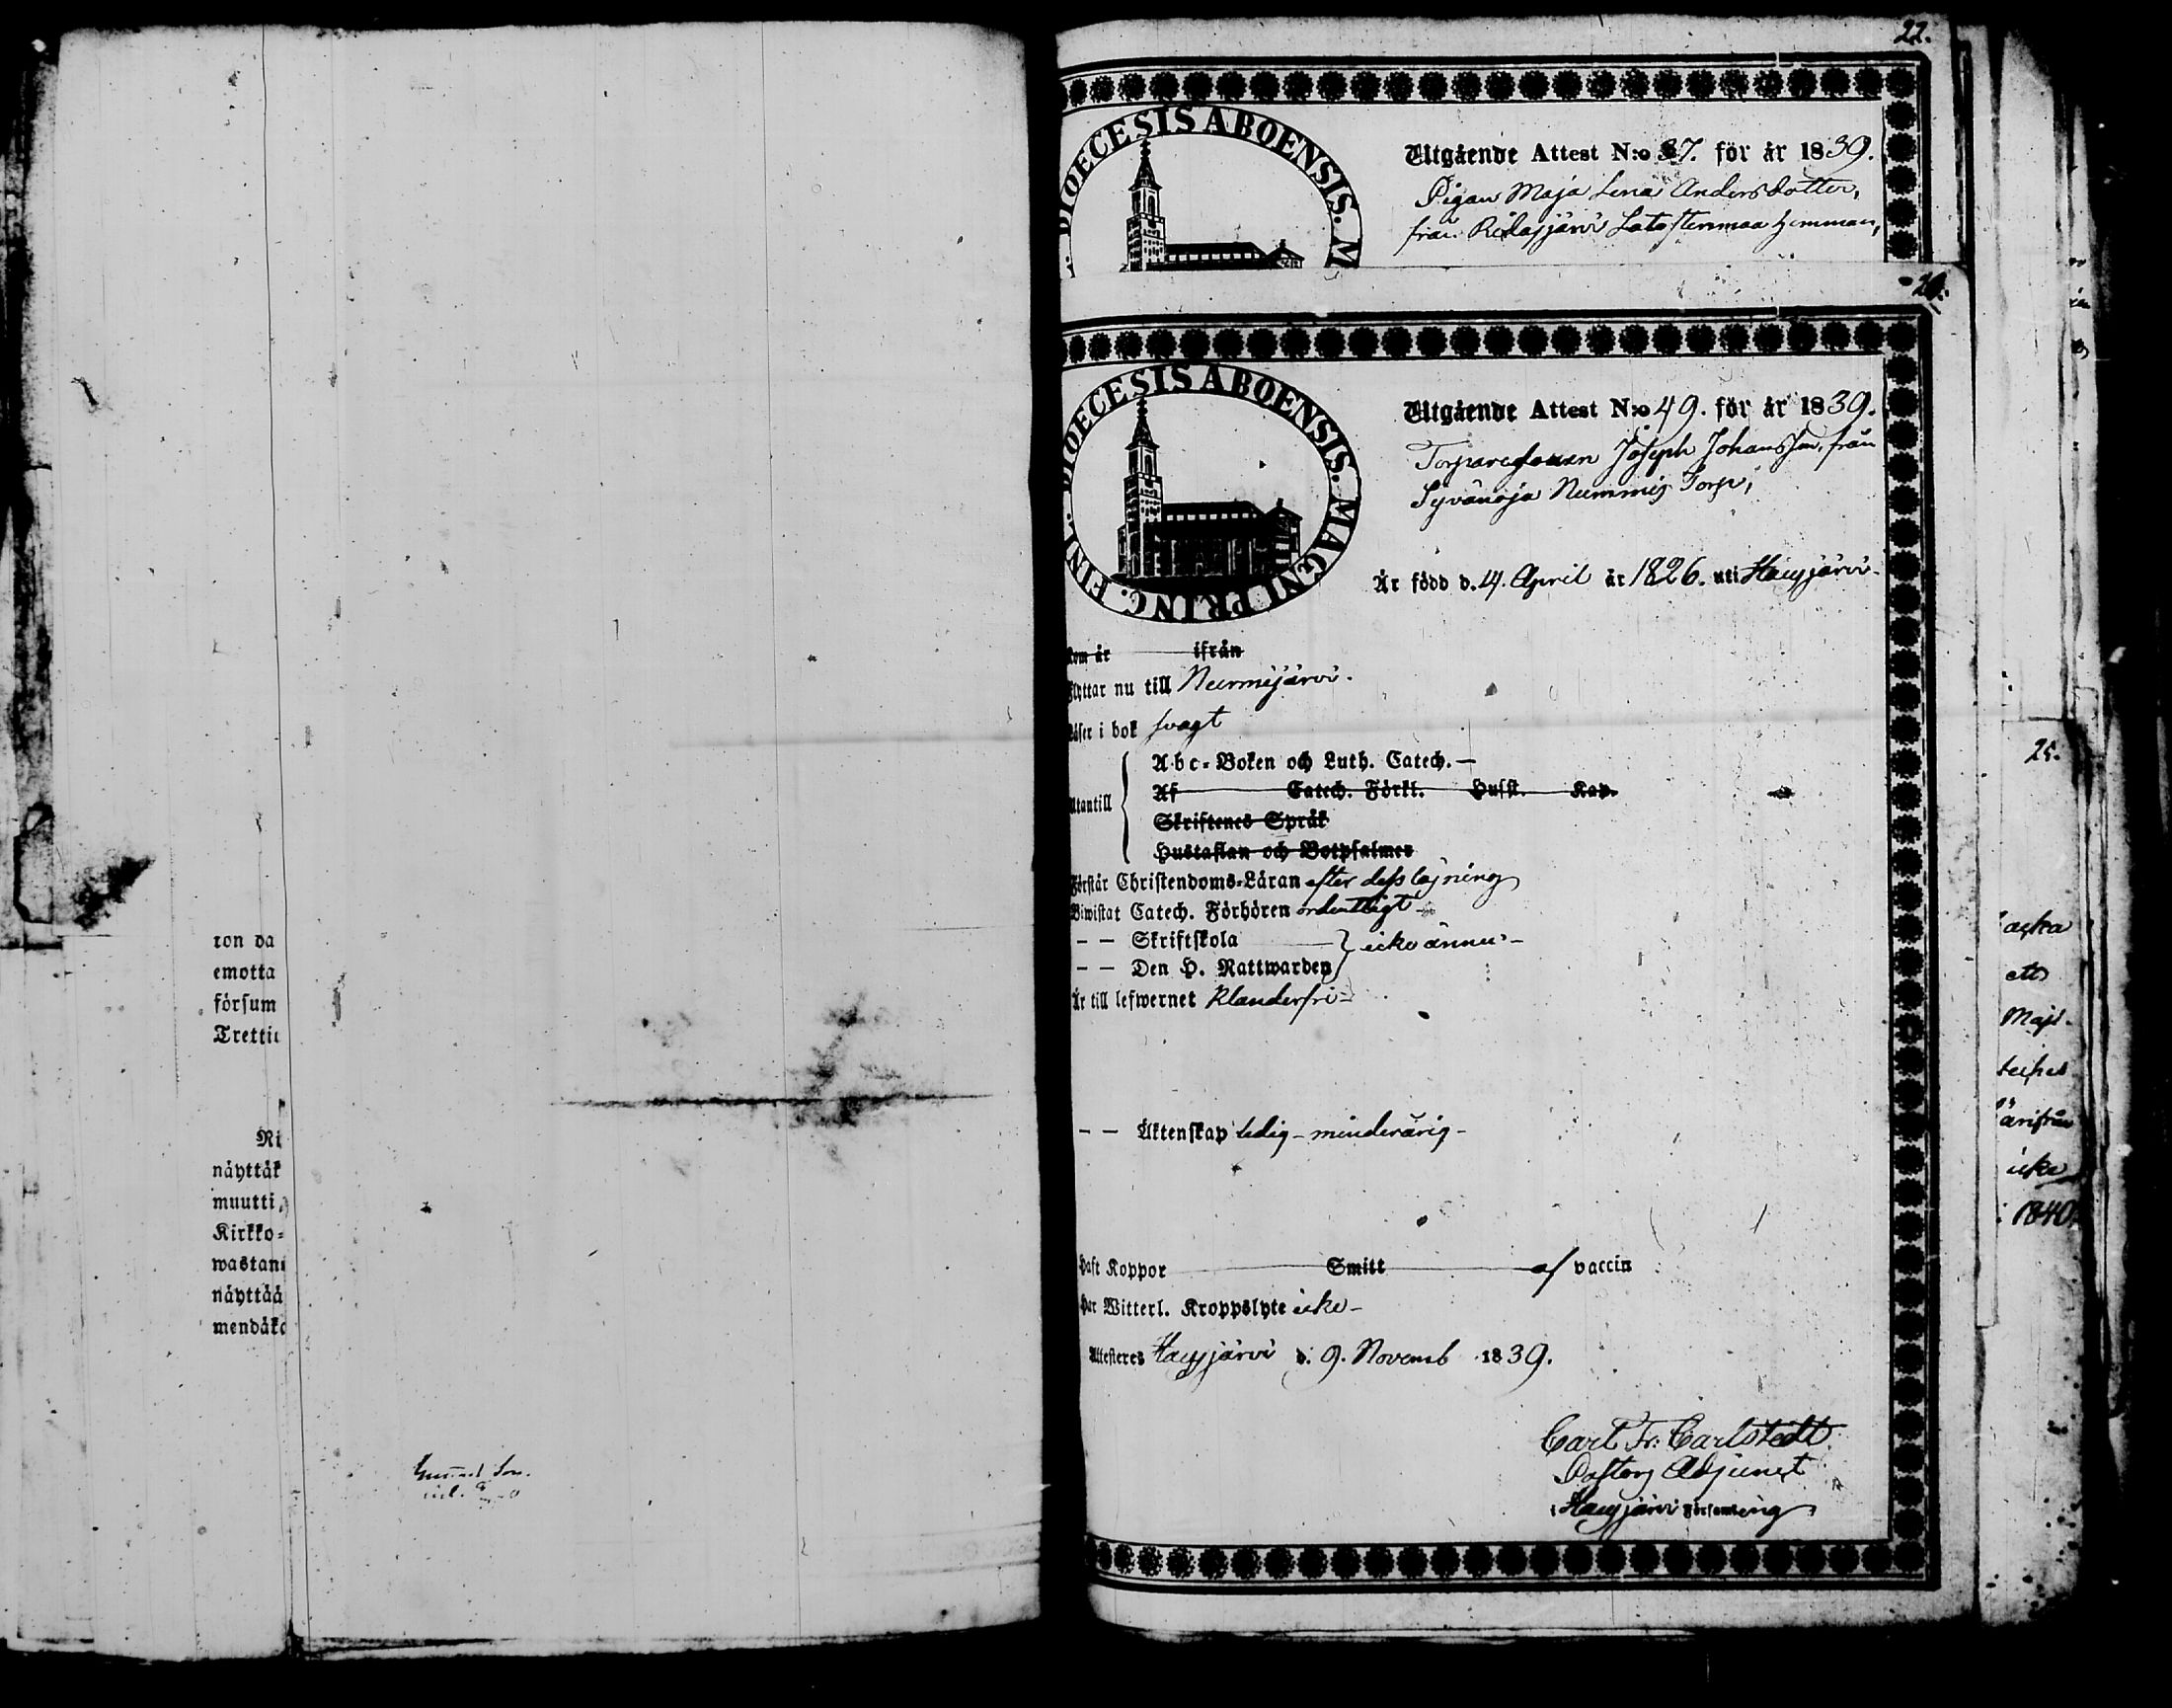 ron da
emotta
försum
Tretti
Ni
näyttäk
muutti,
Kirkko-
wastan
näyttää
mendäk
22.
DIOECESIS ABOENSIS. M
Utgående Attest N:o 37. för år 1839.
Pigan Maja Lena Andersdotter,
från Ridasjärvi Latostenmaa hemman,
DIOECESIS ABOENSIS. MAGNI PRINC. FINL.
Utgående Attest N:o 49. för år 1839.
Torparesonen Joseph Johansson, från
Syvänoja Nummis Torp,
Är född d. 4. April år 1826. uti Hausjärvi.
Kom år ifrån
Flyttar nu till Nurmijärvi.
Läser i bok svagt
Utantill
Abc-Boken och Luth. Catech. —
Af Catech. Förkl. Hufst. Kap.
Skriftenes Språk
Hustaflan och Botpsalmer
Förstår Christendoms-Läran efter dess läsning
Biwistat Catech. Förhören ordentligt
— — Skriftskola } icke ännu —
— — Den H. Nattwarden
Är till lefwernet klanderfri —
— — Äktenskap ledig — minderårig —
Haft Koppor Smitt af vaccin
Har Witterl. Kroppslyte icke —
Attesteres Hausjärvi d. 9. Novemb 1839.
Carl Fr. Carlstedt
Pastors Adjunct
i Hausjärvi Församling
25.
aska
Majt.
icke
1840.